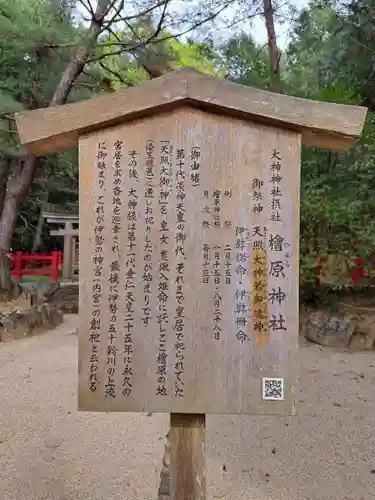 大神神社摂社 檜原神社
ひばら
御祭神 天照大神若御魂神
伊弉諾命・伊弉冊命
例祭 二月十五日
檜原祭 一月十五日・八月二十八日
月次祭 毎月十五日
(御由緒)
第十代崇神天皇の御代、それまで皇居で祀られていた
「天照大御神」を皇女豊鍬入姫命に託しここ檜原の地
(倭笠縫邑)に遷しお祀りしたのが始まりです
その後、大神様は第十一代垂仁天皇二十五年に永久の
宮居を求め各地を巡幸され、最後に伊勢の五十鈴川の上流
に御鎮まり、これが伊勢の神宮(内宮)の創祀と云われる